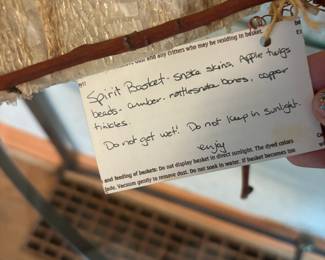 dust and any critters who may be residing in basket.
Spirit Basket - snake skins, Apple twigs
beads - amber, rattlesnake bones, copper
tinkles.
Do not get wet!! Do not keep in sunlight.
enjoy
and feeding of baskets: Do not display basket in direct sunlight. The dyed colors
fade. Vacuum gently to remove dust. Do not soak in water. If basket becomes too